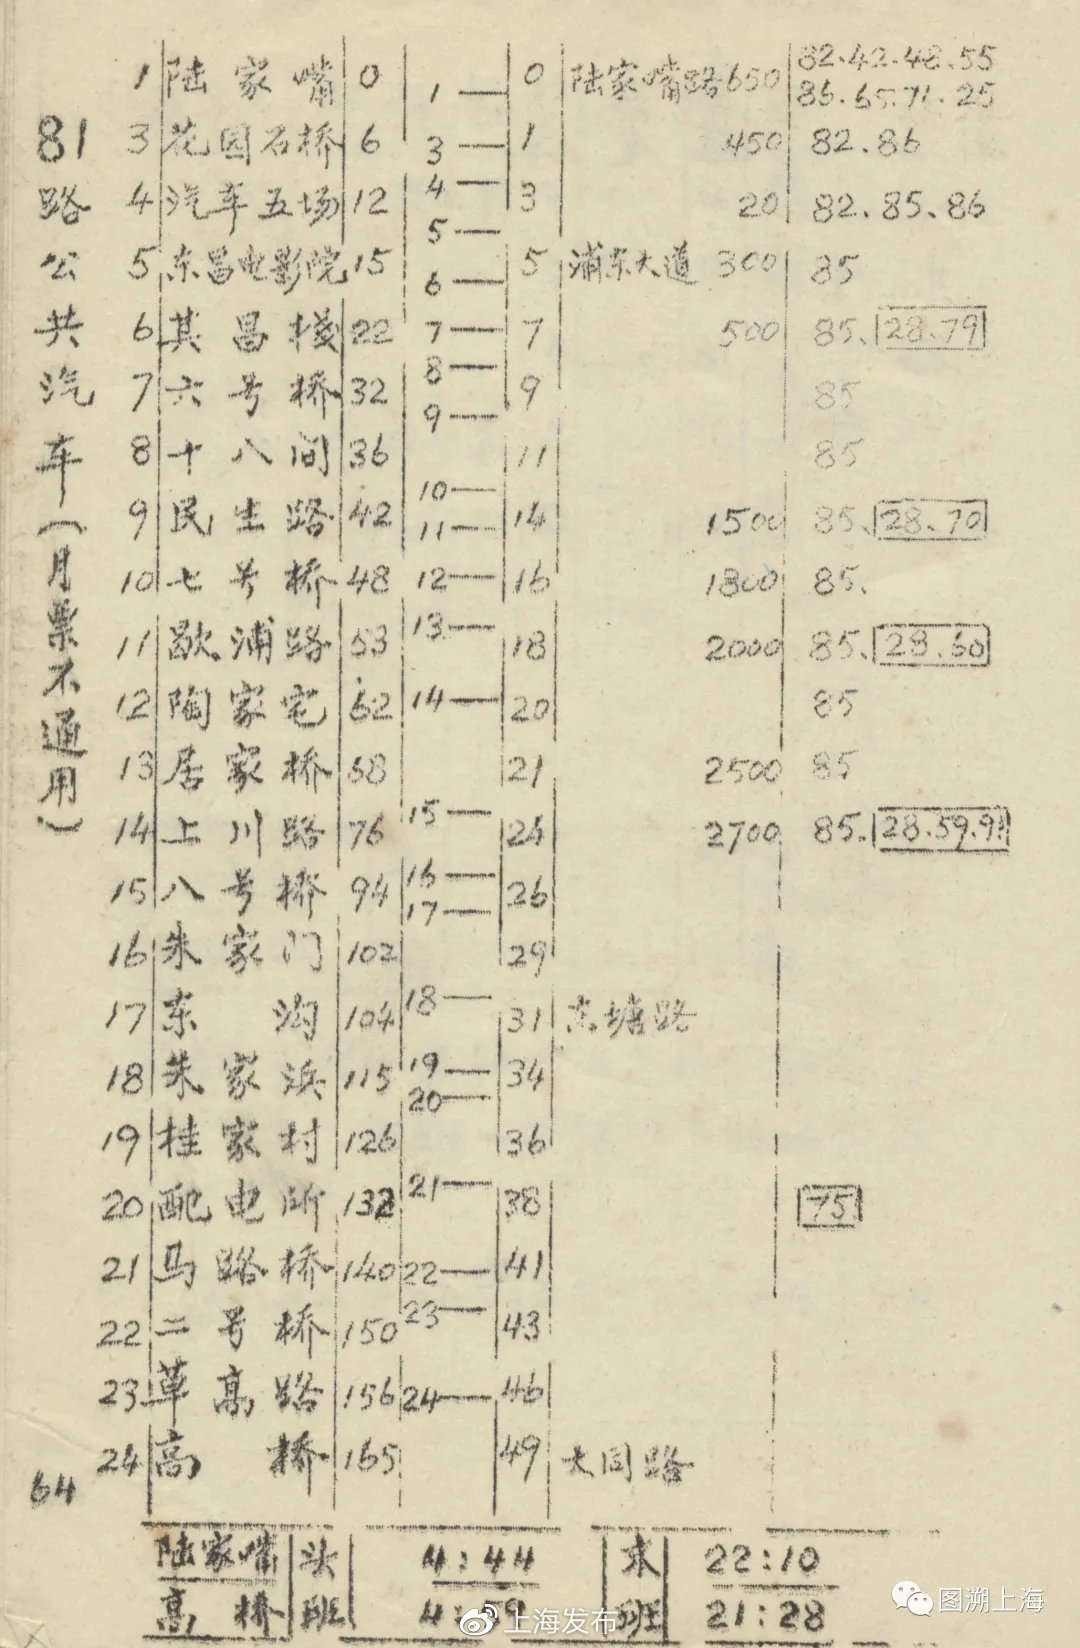 81路公共汽车(月票不通用)
1 陆家嘴 0 1 0 陆家嘴路 650 82.42.48.55
86.65.71.25
3 花园石桥 6 3 1 450 82.86
4 汽车五场 12 4 3 20 82.85.86
5
5 东昌电影院 15 6 5 浦东大道 300 85
6 其昌栈 22 7 7 500 85. 28.79
7 六号桥 32 8 9 85
9
8 十八间 36 11 85
10
9 民生路 42 11 14 1500 85. 28.70
10 七号桥 48 12 16 1800 85.
11 歇浦路 53 13 18 2000 85. 28.60
12 陶家宅 62 14 20 85
13 居家桥 68 21 2500 85
14 上川路 76 15 24 2700 85. 28.59.91
15 八号桥 94 16 26
17
16 朱家门 102 29
17 东沟 104 18 31 东塘路
18 朱家浜 115 19 34
20
19 桂家村 126 36
20 配电所 132 21 38 75
21 马路桥 140 22 41
22 二号桥 150 23 43
23 草高路 156 24 46
24 高桥 165 49 大同路
64
陆家嘴 头 4:44 末 22:10
高桥 班 班 21:28
上海发布
图溯上海